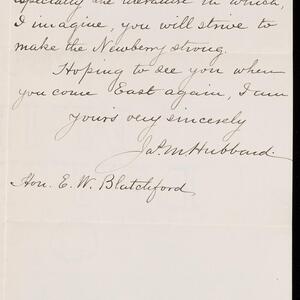 especially the literature in which,
I imagine, you will strive to
make the Newberry strong.
Hoping to see you when
you come East again, I am
yours very sincerely
Jas. M. Hubbard.
Hon. E. W. Blatchford